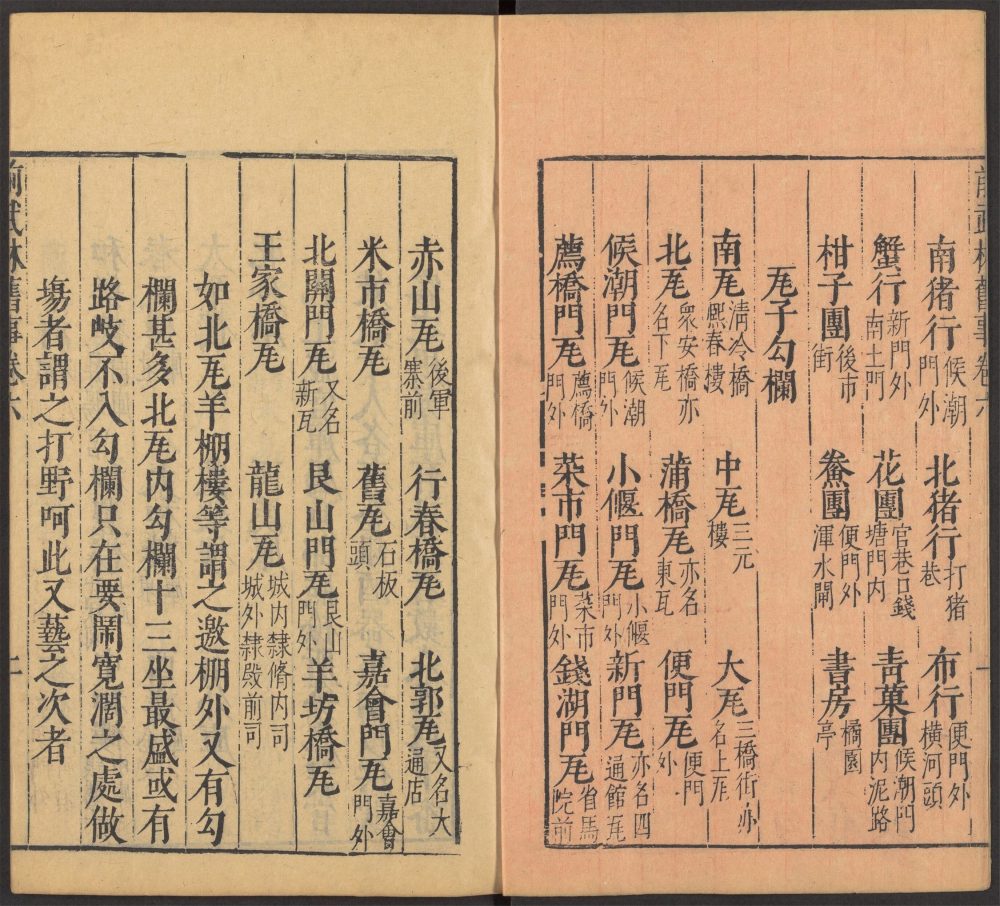 前武林舊事卷六
南猪行候潮門外 北猪行打猪巷 布行便門外橫河頭
蟹行新門外南土門 花團官巷口錢塘門内 青菓團候潮門内泥路
柑子團後市街 鮝團便門外渾水閘 書房橘園亭
瓦子勾欄
南瓦清冷橋熈春樓 中瓦三元樓 大瓦三橋街亦名上瓦
北瓦衆安橋亦名下瓦 蒲橋瓦亦名東瓦 便門瓦便門外
候潮門瓦候潮門外 小堰門瓦小堰門外 新門瓦亦名四通館瓦
薦橋門瓦薦橋門外 菜市門瓦菜市門外 錢湖門瓦省馬院前
赤山瓦後軍寨前 行春橋瓦 北郭瓦又名大通店
米市橋瓦 舊瓦石板頭 嘉會門瓦嘉會門外
北關門瓦又名新瓦 艮山門瓦艮山門外 羊坊橋瓦
王家橋瓦 龍山瓦城内隸脩内司城外隸殿前司
如北瓦羊棚樓等謂之邀棚外又有勾
欄甚多北瓦内勾欄十三坐最盛或有
路岐不入勾欄只在要鬧寬濶之處做
塲者謂之打野呵此又藝之次者
前武林舊事卷六